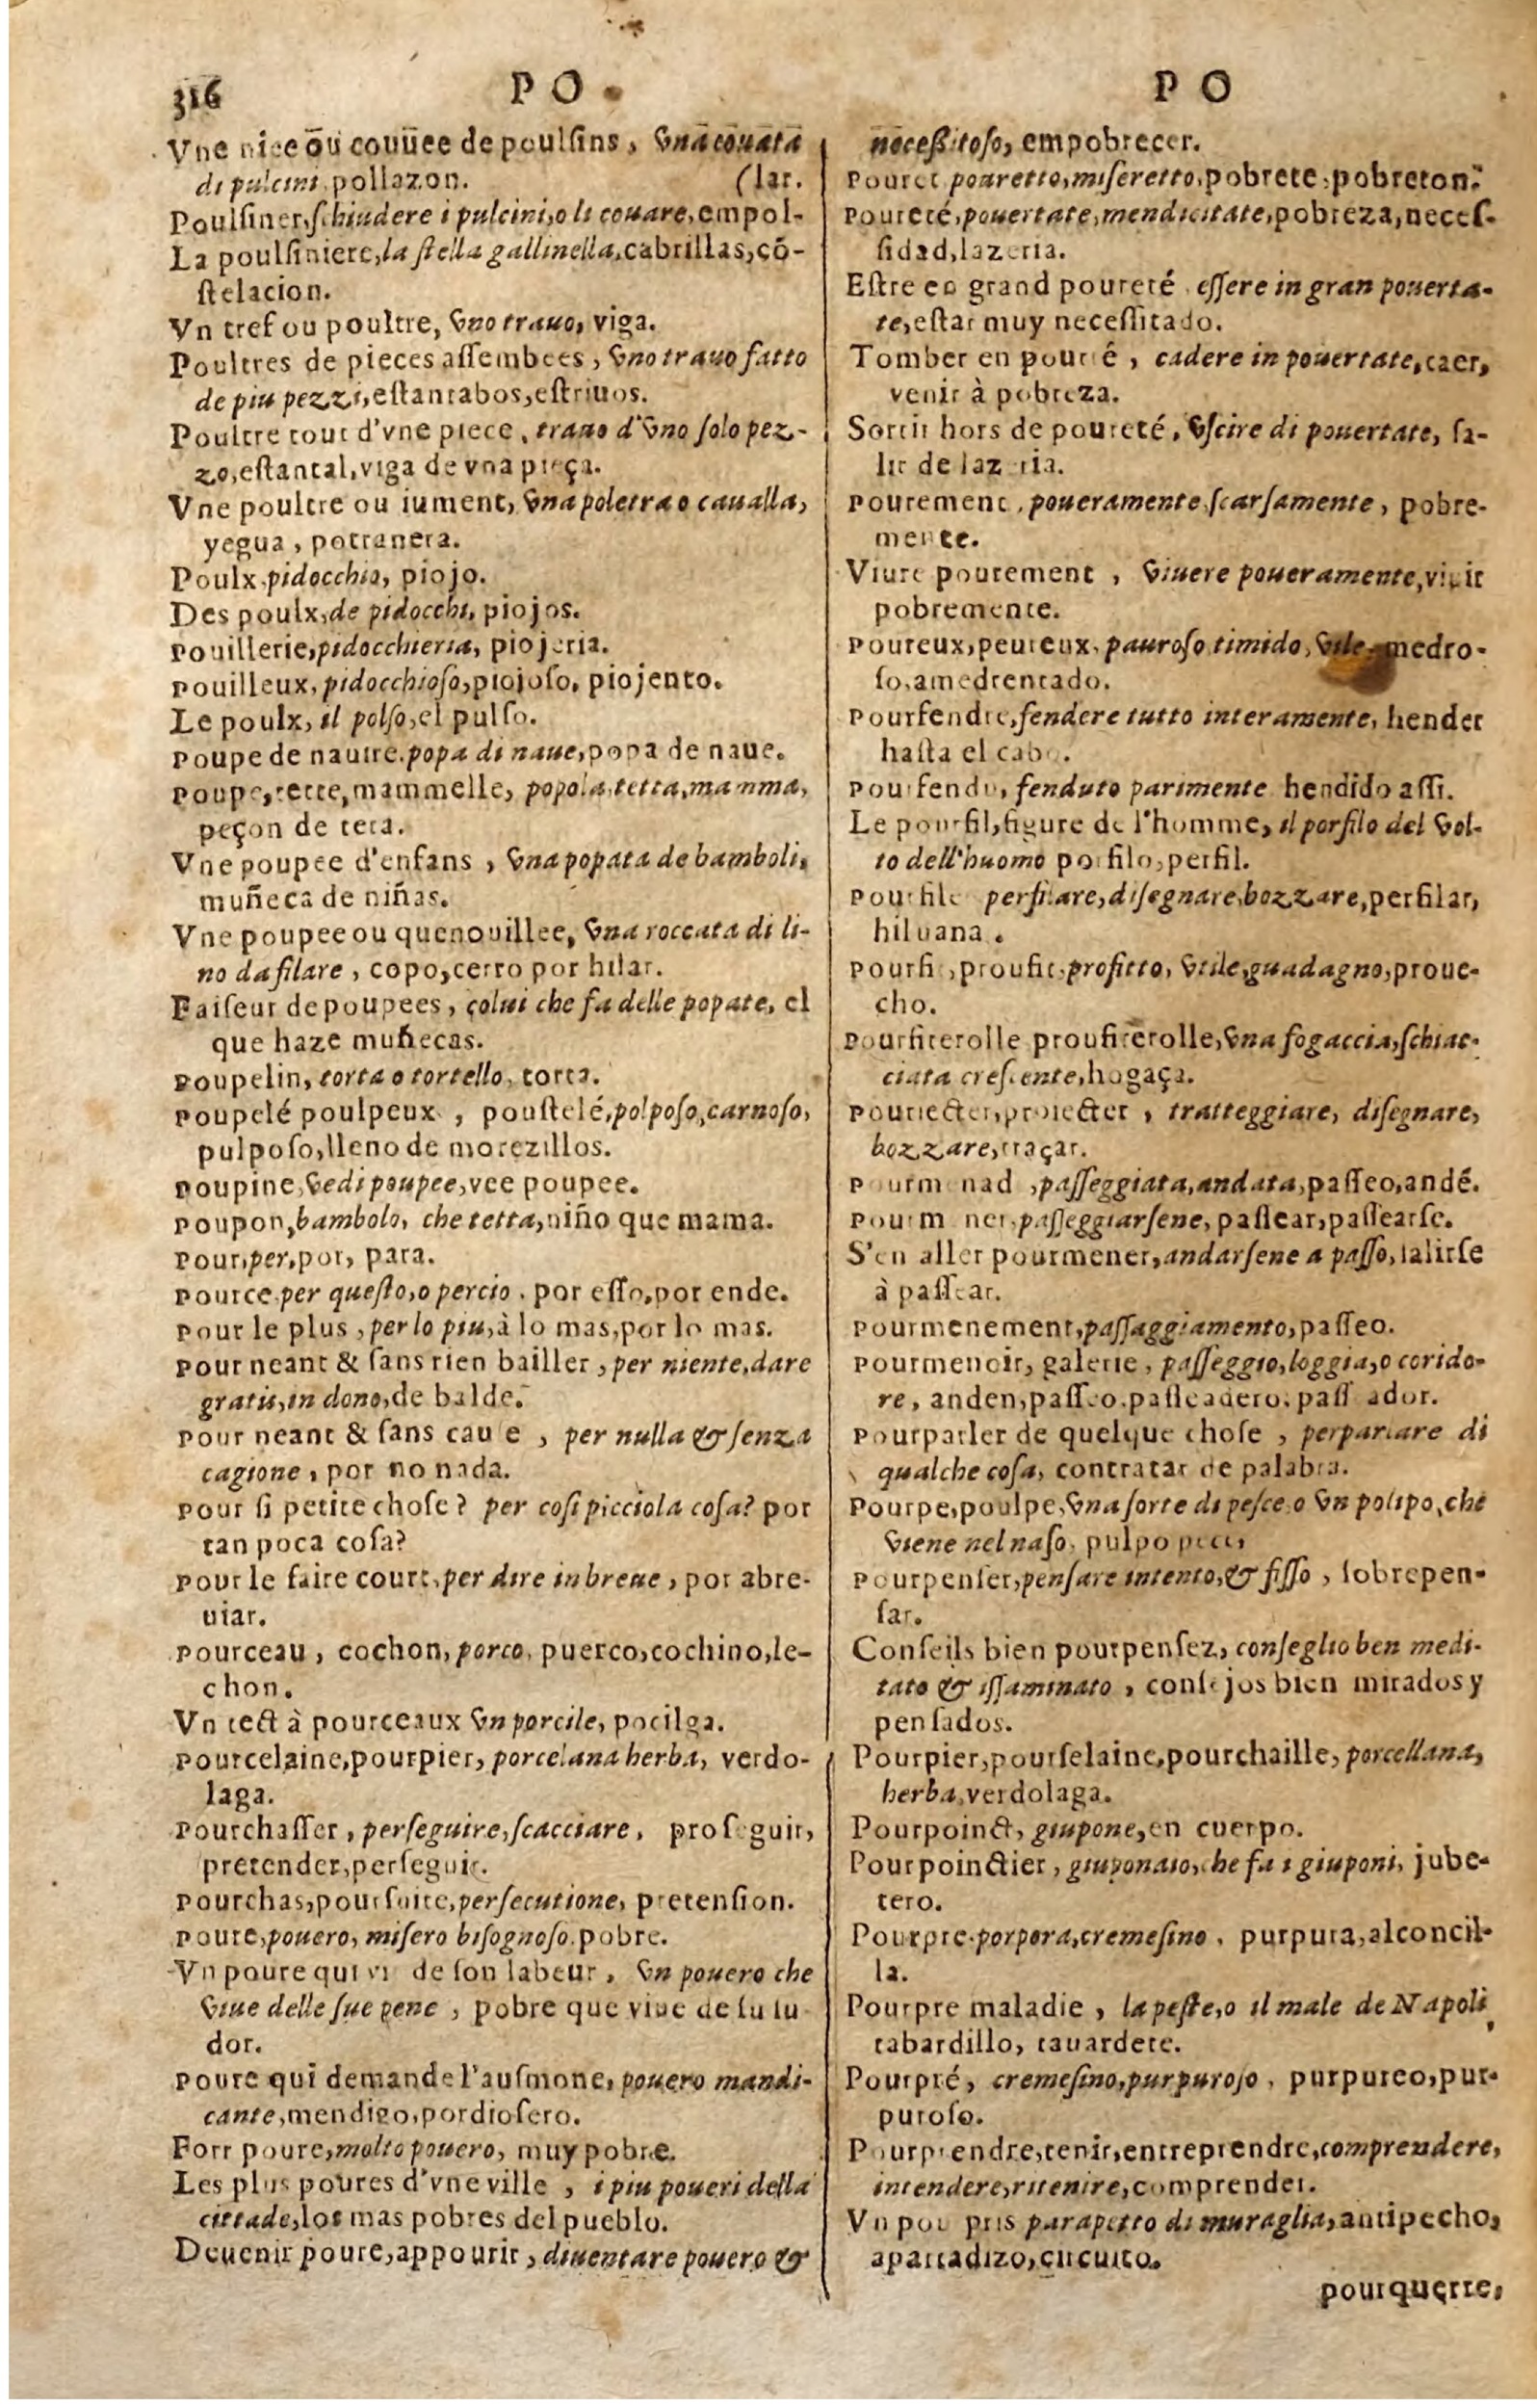 316
PO.
Vne nice ou couuee de poulſins, vna couata
di pulcini, pollazon. (lar.
Poulſiner, ſchiudere i pulcini, o li couare, empol-
La poulſiniere, la ſtella gallinella, cabrillas, cõ-
ſtelacion.
Vn tref ou poultre, vno trauo, viga.
Poultres de pieces aſſembees, vno trauo fatto
de piu pezzi, eſtantabos, eſtriuos.
Poultre tout d'vne piece, trauo d'vno ſolo pez-
zo, eſtantal, viga de vna pieça.
Vne poultre ou iument, vna poletra o caualla,
yegua, potranera.
Poulx, pidocchio, piojo.
Des poulx, de pidocchi, piojos.
Pouillerie, pidocchieria, piojeria.
Pouilleux, pidocchioſo, piojoſo, piojento.
Le poulx, il polſo, el pulſo.
Poupe de nauire. popa di naue, popa de naue.
Poupe, tette, mammelle, popola, tetta, mamma,
peçon de teta.
Vne poupee d'enfans, vna popata de bamboli,
muñeca de niñas.
Vne poupee ou quenouillee, vna roccata di li-
no da filare, copo, cerro por hilar.
Faiſeur de poupees, colui che fa delle popate, el
que haze muñecas.
Poupelin, torta o tortello, torta.
Poupelé poulpeux, pouſtelé, polpoſo, carnoſo,
pulpoſo, lleno de morezillos.
Poupine, vedi poupee, vee poupee.
Poupon, bambolo, che tetta, niño que mama.
Pour, per, por, para.
Pource. per queſto, o percio. por eſſo, por ende.
Pour le plus, per lo piu, à lo mas, por lo mas.
Pour neant & ſans rien bailler, per niente, dare
gratis, in dono, de balde.
Pour neant & ſans cau e, per nulla & ſenza
cagione, por no nada.
Pour ſi petite choſe? per coſi picciola coſa? por
tan poca coſa?
Pour le faire court, per dire in breue, por abre-
uiar.
Pourceau, cochon, porco, puerco, cochino, le-
chon.
Vn tect à pourceaux vn porcile, pocilga.
Pourcelaine, pourpier, porcelana herba, verdo-
laga.
Pourchaſſer, perſeguire, ſcacciare, proſeguir,
pretender, perſeguir.
Pourchas, pourſuite, perſecutione, pretenſion.
Poure, pouero, miſero biſognoſo. pobre.
Vn poure qui vi de ſon labeur, vn pouero che
viue delle ſue pene, pobre que viue de ſu ſu
dor.
Poure qui demande l'auſmone, pouero mandi-
cante, mendigo, pordioſero.
Fort poure, molto pouero, muy pobre.
Les plus poures d'vne ville, i piu poueri della
cittade, los mas pobres del pueblo.
Deuenir poure, appourir, diuentare pouero &
PO
neceßitoſo, empobrecer.
Pouret pouretto, miſeretto, pobrete, pobreton.
Poureté, pouertate, mendicitate, pobreza, neceſ-
ſidad, lazeria.
Eſtre en grand poureté. eſſere in gran pouerta-
te, eſtar muy neceſſitado.
Tomber en pourté, cadere in pouertate, caer,
venir à pobreza.
Sortir hors de poureté, vſcire di pouertate, ſa-
lir de lazeria.
Pourement, poueramente, ſcarſamente, pobre-
mente.
Viure pourement, viuere poueramente, viuir
pobremente.
Poureux, peureux, pauroſo timido, vile, medro-
ſo, amedrentado.
Pourfendre, fendere tutto interamente, hender
haſta el cabo.
Pourfendu, fenduto parimente hendido aſſi.
Le pourfil, figure de l'homme, il porfilo del vol-
to dell'huomo porfilo, perfil.
Pourfile perfilare, diſegnare, bozzare, perfilar,
hiluana.
Pourfit, proufit, profitto, vtile, guadagno, proue-
cho.
Pourfiterolle proufiterolle, vna fogaccia, ſchiac-
ciata creſcente, hogaça.
Pouriecter, proiecter, tratteggiare, diſegnare,
bozzare, traçar.
Pourm nad, paſſeggiata, andata, paſſeo, andé.
Pourm ner, paſſeggiarſene, paſſear, paſſearſe.
S'en aller pourmener, andarſene a paſſo, ſalirſe
à paſſear.
Pourmenement, paſſaggiamento, paſſeo.
Pourmenoir, galerie, paſſeggio, loggia, o corido-
re, anden, paſſeo. paſſeadero. paſſ ador.
Pourparler de quelque choſe, perparlare di
qualche coſa, contratar de palabra.
Pourpe, poulpe, vna ſorte di peſce, o vn polipo, che
viene nel naſo, pulpo pece,
Pourpenſer, penſare intento, & fiſſo, ſobrepen-
ſar.
Conſeils bien pourpenſez, conſeglio ben medi-
tato & iſſaminato, conſejos bien mirados y
penſados.
Pourpier, pourſelaine, pourchaille, porcellana,
herba, verdolaga.
Pourpoinct, giupone, en cuerpo.
Pourpoinctier, giuponaio, che fa i giuponi, jube-
tero.
Pourpre. porpora, cremeſino, purpura, alconcil-
la.
Pourpre maladie, la peſte, o il male de Napoli,
tabardillo, tauardete.
Pourpré, cremeſino, purpuroſo, purpureo, pur-
puroſo.
Pourprendre, tenir, entreprendre, comprendere,
intendere, ritenire, comprender.
Vn pou pris parapetto di muraglia, antipecho,
apartadizo, circuito.
pourquerre,